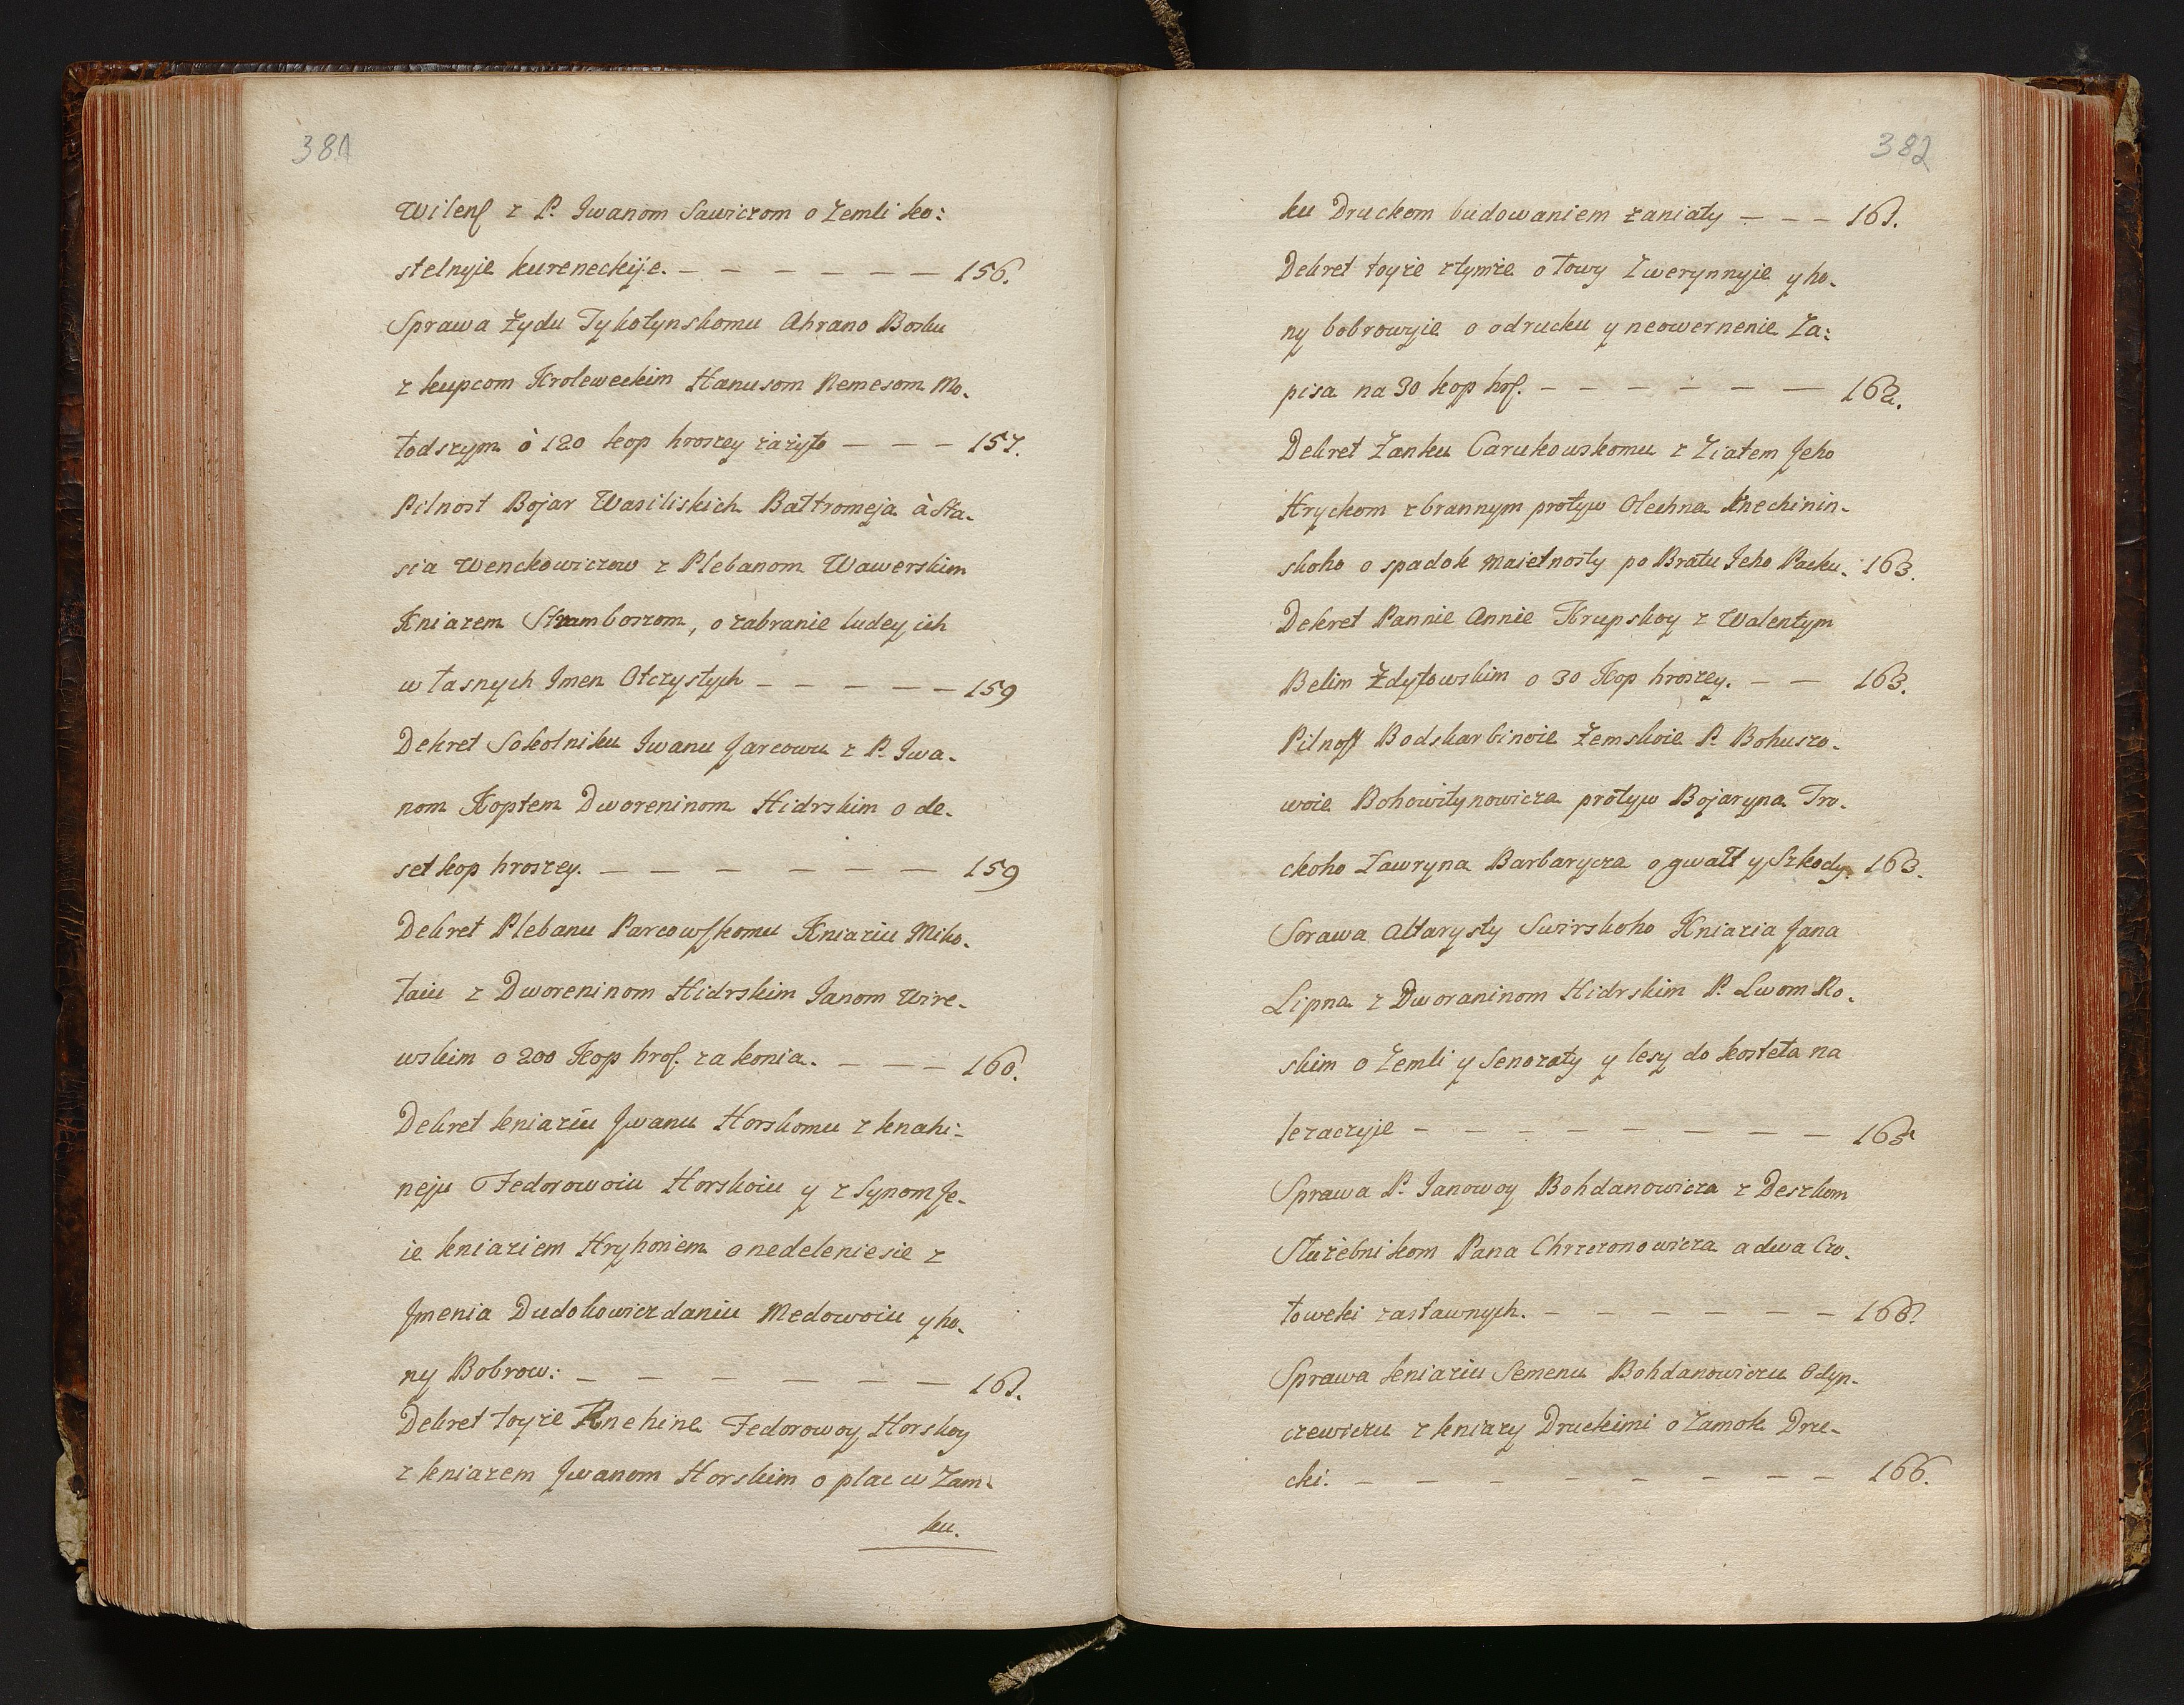 381
Wilenſ z P. Iwanom Sawiczom o Zemli ko:
stelnyie kureneckije. — — — — — — — 156.
Sprawa Żydu Tykotynskomu Ahrano Bosku
z kupcom Kroleweckim Hanusom Remesom Mo-
łodszym ò 120 kop hroszey zażyto — — — 157.
Pilnost Bojar Wasiliskich Bałtromeja à Sta-
sia Wenckowiczow z Plebanom Wawerskim
Kniazem Stramboszom, o zabranie ludey ich
własnych Imen Otczystych — — — — — 159
Dekret Sokolniku Iwanu Jarcowu z P. Iwa-
nom Koptem Dworeninom Hidrskim o de-
set kop hroszey. — — — — — — — 159
Dekret Plebanu Parcowſkomu Kniaziu Miko-
łaiu z Dworeninom Hidrskim Janom Wire-
wskim o 200 Kop hroſ. za konia. — — — 160.
Dekret kniaziu Jwanu Horskomu z knahi-
neju Fedorowoiu Horskoiu y z Synom Je-
ie kniaziem Hryhoriem o nedeleniesie z
Jmenia Dudokowicz daniu Medowoiu y ho-
ny Bobrow: — — — — — — — 161.
Dekret toyże Knehine Fedorowoy Horskoy
z kniazem Jwanom Horskim o plac w Zam-
ku.
382
ku Druckom budowaniem zaniaty — — — 161.
Dekret toyże z tymże o łowy Zwerynnyie y ho-
ny bobrowyie o odrucku y neowernenie Za:
pisa na 30 kop hroſ. — — — — — — — 162.
Dekret Zanku Carukowskomu z Ziatem Jeho
Hryckom zbrannym protyw Olechna Knechinin-
skoho o spadok maietnosty po Bratu Jeho Packu. 163.
Dekret Pannie Annie Krupskoy z Walentym
Belim Żdytowskim o 30 Kop hroszey. — — 163.
Pilnoſt Podskarbinoie Żemskoie P. Bohuszo-
woie Bohowitynowicza protyw Bojaryna Tro-
ckoho Ławryna Barbarycza o gwałt y Szkody. 163.
Sprawa Ałtarysty Swirskoho Kniazia Jana
Lipna z Dworaninom Hidrskim P. Lwom Ro-
skim o Zemli y Senozaty y lesy do kosteła na
lezaczyie — — — — — — — — — 165
Sprawa P. Janowoy Bohdanowicza z Deszkom
Służebnikom Pana Chrzczonowicza a dwa Czo-
łoweki zastawnych. — — — — — — — 166.
Sprawa kniaziu Semenu Bohdanowiczu Odyn-
czewiczu z kniazy Druckimi o Zamok Dru-
cki. — — — — — — — — — 166.